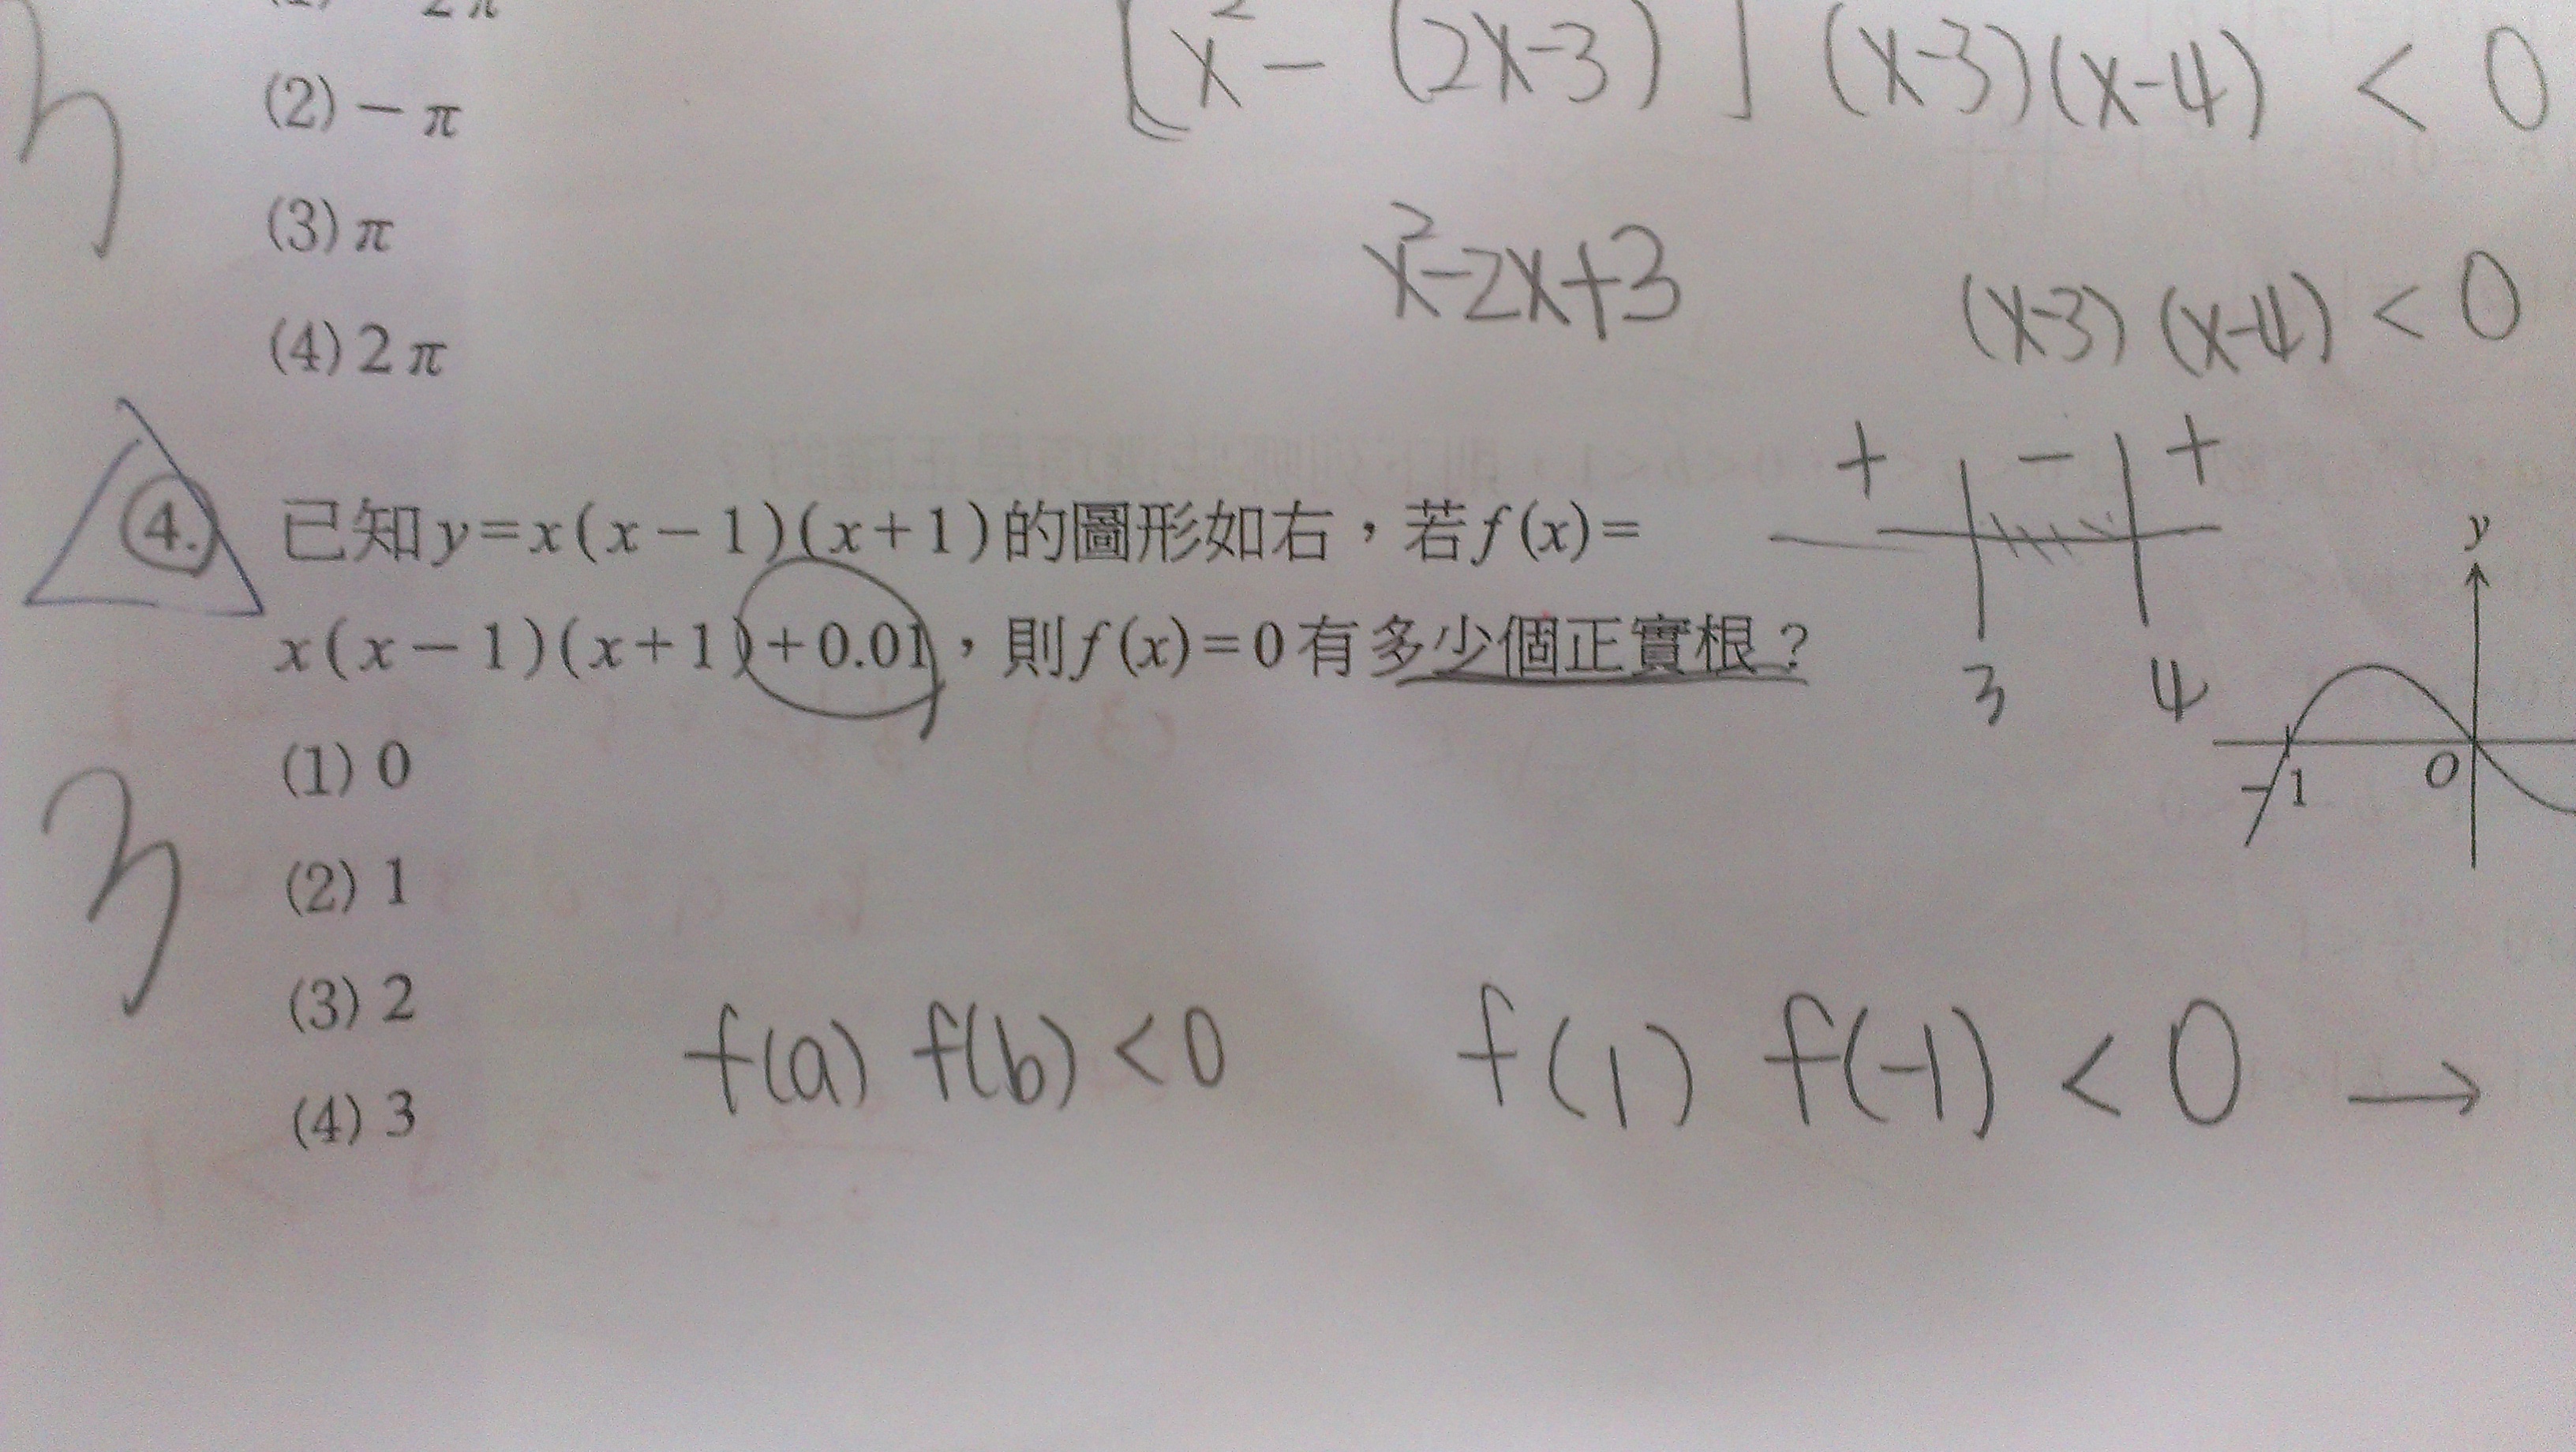 [x²-(2x-3)](x-3)(x-4)<0
(2)-π
(3)π
x²-2x+3
(x-3)(x-4)<0
(4)2π
+ - +
3 4
4. 已知y=x(x-1)(x+1)的圖形如右，若f(x)=
x(x-1)(x+1)+0.01，則f(x)=0有多少個正實根？
y
-1 O
(1) 0
(2) 1
(3) 2
(4) 3
3
f(a) f(b)<0 f(1) f(-1)<0 →